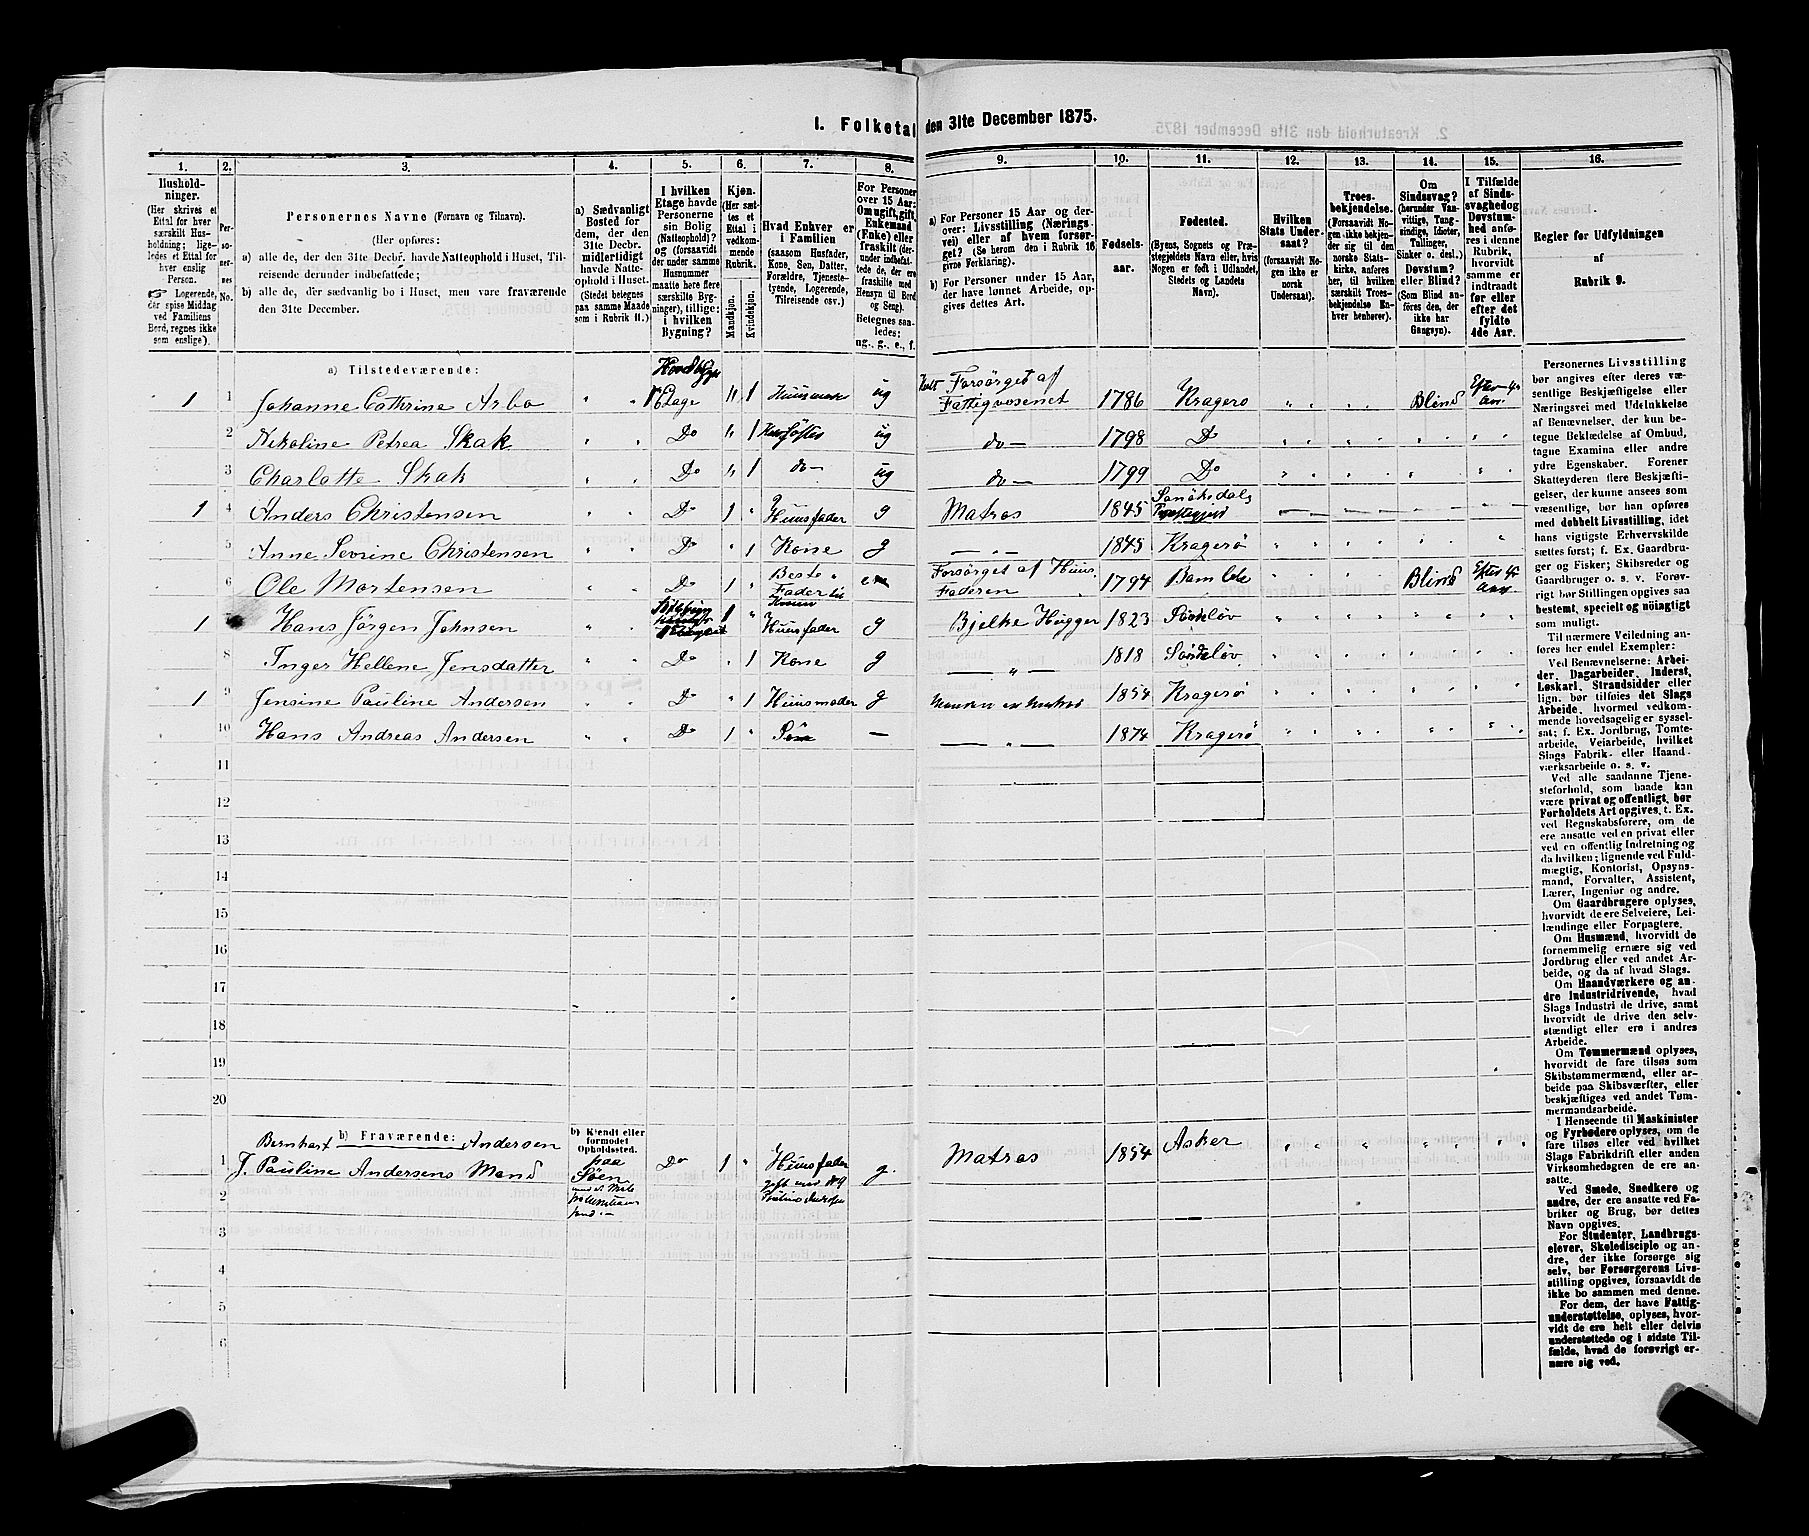 I. Folketal den 31te December 1875.
1. 2. 3. 4. 5. 6. 7. 8. 9. 10. 11. 12. 13. 14. 15. 16.
Hushold-
ninger.
(Her skrives et
Ettal for hver
særskilt Hus-
holdning; lige-
ledes et Ettal for
hver enslig
Person.
☞ Logerende,
der spise Middag
ved Familiens
Bord, regnes ikke
som enslige).
Per-
so-
ner-
nes
No.
Personernes Navne (Fornavn og Tilnavn).
(Her opføres:
a) alle de, der den 31te Decbr. havde Natteophold i Huset, Til-
reisende derunder indbefattede;
b) alle de, der sædvanlig bo i Huset, men vare fraværende
den 31te December.
a) Sædvanligt
Bosted for
dem, der den
31te Decbr.
midlertidigt
havde Natte-
ophold i Huset.
(Stedet betegnes
paa samme Maade
som i Rubrik 11.)
I hvilken
Etage havde
Personerne
sin Bolig
(Natteophold)?
og (forsaavidt
der under samme
Husnummer
maatte høre flere
særskilte Byg-
ninger), tillige:
i hvilken
Bygning?
Kjøn.
(Her sæt-
tes et
Ettal i
vedkom-
mende
Rubrik.
Mandkjøn.
Kvindekjøn.
Hvad Enhver er
i Familien
(saasom Husfader,
Kone, Søn, Datter,
Forældre, Tjeneste-
tyende, Logerende,
Tilreisende osv.)
For Personer
over 15 Aar:
Om ugift, gift,
Enkemand
(Enke) eller
fraskilt (der-
under indbefat-
tede de, der ere
fraskilte med
Hensyn til Bord
og Seng).
Betegnes saa-
ledes:
ug., g., e., f.
a) For Personer 15 Aar og der-
over: Livsstilling (Nærings-
vei) eller af hvem forsør-
get? (Se herom den i Rubrik 16
givne Forklaring).
b) For Personer under 15 Aar,
der have lønnet Arbeide, op-
gives dettes Art.
Fødsels-
aar.
Fødested.
(Byens, Sognets og Præ-
stegjeldets Navn eller, hvis
Nogen er født i Udlandet,
Stedets og Landets
Navn).
Hvilken
Stats Under-
saat?
(forsaavidt No-
gen ikke er
norsk
Undersaat).
Troes-
bekjendelse.
(Forsaavidt No-
gen ikke bekjen-
der sig til den
norske Stats-
kirke, anføres
her, til hvilken
særskilt Troes-
bekjendelse En-
hver henhører).
Om
Sindssvag?
(herunder Van-
vittige, Tung-
sindige, Idioter,
Tullinger,
Sinker o. desl.)
Døvstum?
eller Blind?
(Som Blind an-
føres den, der
ikke har
Gangsyn).
I Tilfælde
af Sinds-
svaghed og
Døvstum-
hed anfø-
res i denne
Rubrik,
hvorvidt
samme er
indtraadt
før eller
efter det
fyldte
4de Aar.
Regler for Udfyldningen
af
Rubrik 9.
a) Tilstedeværende:
1 1 Johanne Cathrine Arbo Etage 1 Huusmoder ug Forsörget af Fattigvæsenet 1786 Kragerø Blind Efter 4
2 Nikoline Petrea Skak Do 1 Søster ug do 1798 Do
3 Charlotte Skak Do 1 do ug do 1799 Do
1 4 Anders Christensen Do 1 Huusfader g Matros 1845
5 Anne Sevrine Christensen Do 1 Kone g 1845 Kragerö
6 Ole Mortensen Do 1 Beste Fader til Konen e Forsörget af Huus Faderen 1794 Bamble Blind Efter 4
1 Hans Jörgen Johnsen 1 Huusfader g Bjelke Hugger 1823 Söndeløv
8 Inger Hellene Jensdatter Do 1 Kone g 1818 Söndeløv
1 9 Jensine Pauline Andersen Do 1 Huusmoder g Manden er matros 1854 Kragerö
10 Hans Andreas Andersen Do 1 Sön 1874 Kragerö
11
12
13
14
15
16
17
18
19
20
b) Fraværende:
b) Kjendt eller
formodet
Opholdssted.
1 Bernhart Andersen
J. Pauline Andersens Mand paa Söen Do 1 Huusfader gift med N 9 g. Matros 1854 Asker
2
3
4
5
6
Personernes Livsstilling
bør angives efter deres væ-
sentlige Beskjæftigelse eller
Næringsvei med Udelukkelse
af Benævnelser, der kun be-
tegne Beklædelse af Ombud,
tagne Examina eller andre
ydre Egenskaber. Forener
Skatteyderen flere Beskjæfti-
gelser, der kunne ansees som
væsentlige, bør han opføres
med dobbelt Livsstilling, idet
hans vigtigste Erhvervskilde
sættes først; f. Ex. Gaardbru-
ger og Fisker; Skibsreder og
Gaardbruger o. s. v. Forøv-
rigt bør Stillingen opgives saa
bestemt, specielt og nöiagtigt
som muligt.
Til nærmere Veiledning an-
føres her endel Exempler:
Ved Benævnelserne: Arbei-
der, Dagarbeider, Inderst,
Løskarl, Strandsidder eller
lign. bør tilføies det Slags
Arbeide, hvormed vedkom-
mende hovedsagelig er syssel-
sat; f. Ex. Jordbrug, Tomte-
arbeide, Veiarbeide, hvilket
Slags Fabrik- eller Haand-
værksarbeide o. s. v.
Ved alle saadanne Tjene-
steforhold, som baade kan
være privat og offentligt, bør
Forholdets Art opgives, t. Ex.
ved Regnskabsførere, om de
ere ansatte ved en privat eller
ved en offentlig Indretning og
da hvilken; lignende ved Fuld-
mægtig, Kontorist, Opsyns-
mand, Forvalter, Assistent,
Lærer, Ingeniør og andre.
Om Gaardbrugere oplyses,
hvorvidt de ere Selveiere, Lei-
lændinge eller Forpagtere.
Om Husmænd, hvorvidt de
fornemmelig ernære sig ved
Jordbrug eller ved andet Ar-
beide, og da af hvad Slags.
Om Haandværkere og an-
dre Industridrivende, hvad
Slags Industri de drive, samt
hvorvidt de drive den selv-
stændigt eller ere i andres
Arbeide.
Om Tømmermænd oplyses,
hvorvidt de fare tilsøs som
Skibstømmermænd, eller ar-
beide paa Skibsværfter, eller
beskjæftiges ved andet Tøm-
mermandsarbeide.
I Henseende til Maskinister
og Fyrbødere oplyses, om de
fare tilsøs eller ved hvilket
Slags Fabrikdrift eller anden
Virksomhedsgren de ere an-
satte.
Ved Smede, Snedkere og
andre, der ere ansatte ved Fa-
briker og Brug, bør dettes
Navn opgives.
For Studenter, Landbrugs-
elever, Skoledisciple og an-
dre, der ikke forsørge sig
selv, bør Forsørgerens Livs-
stilling opgives, forsaavidt de
ikke bo sammen med denne.
For dem, der have Fattig-
understøttelse, oplyses, hvor-
vidt de ere helt eller delvis
understøttede og i sidste Til-
fælde, hvad de forøvrigt er-
nære sig ved.